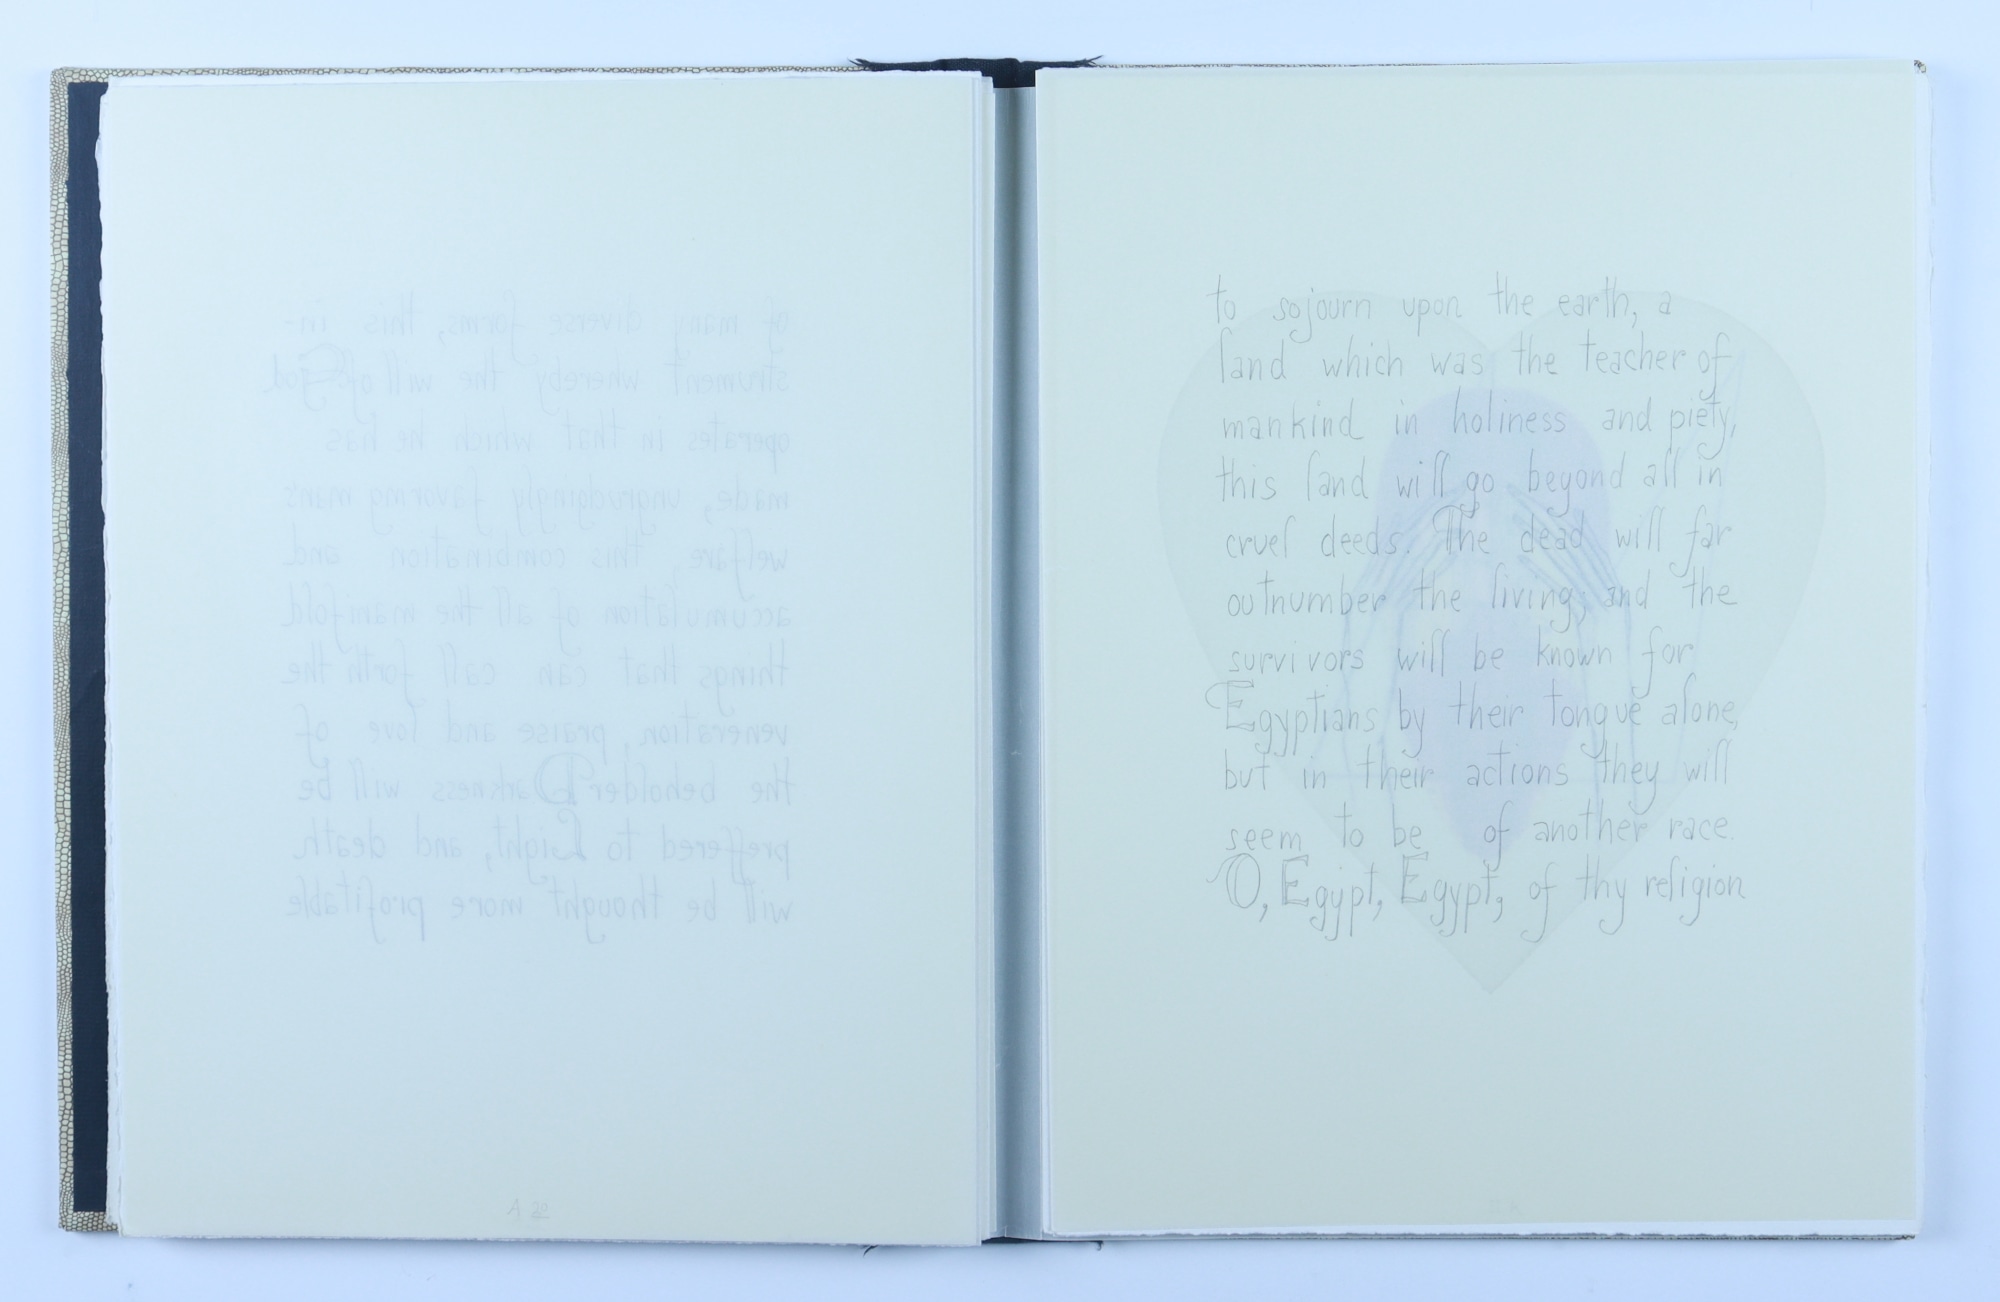 of many diverse forms, this in-
strument whereby the will of God
operates in that which he has
made, ungrudgingly favoring man's
welfare, this combination and
accumulation of all the manifold
things that can call forth the
veneration, praise and love of
the beholder Darkness will be
preffered to Light, and death
will be thought more profitable
A 20
to sojourn upon the earth, a
land which was the teacher of
mankind in holiness and piety,
this land will go beyond all in
cruel deeds. The dead will far
outnumber the living; and the
survivors will be known for
Egyptians by their tongue alone,
but in their actions they will
seem to be of another race.
O, Egypt, Egypt, of thy religion